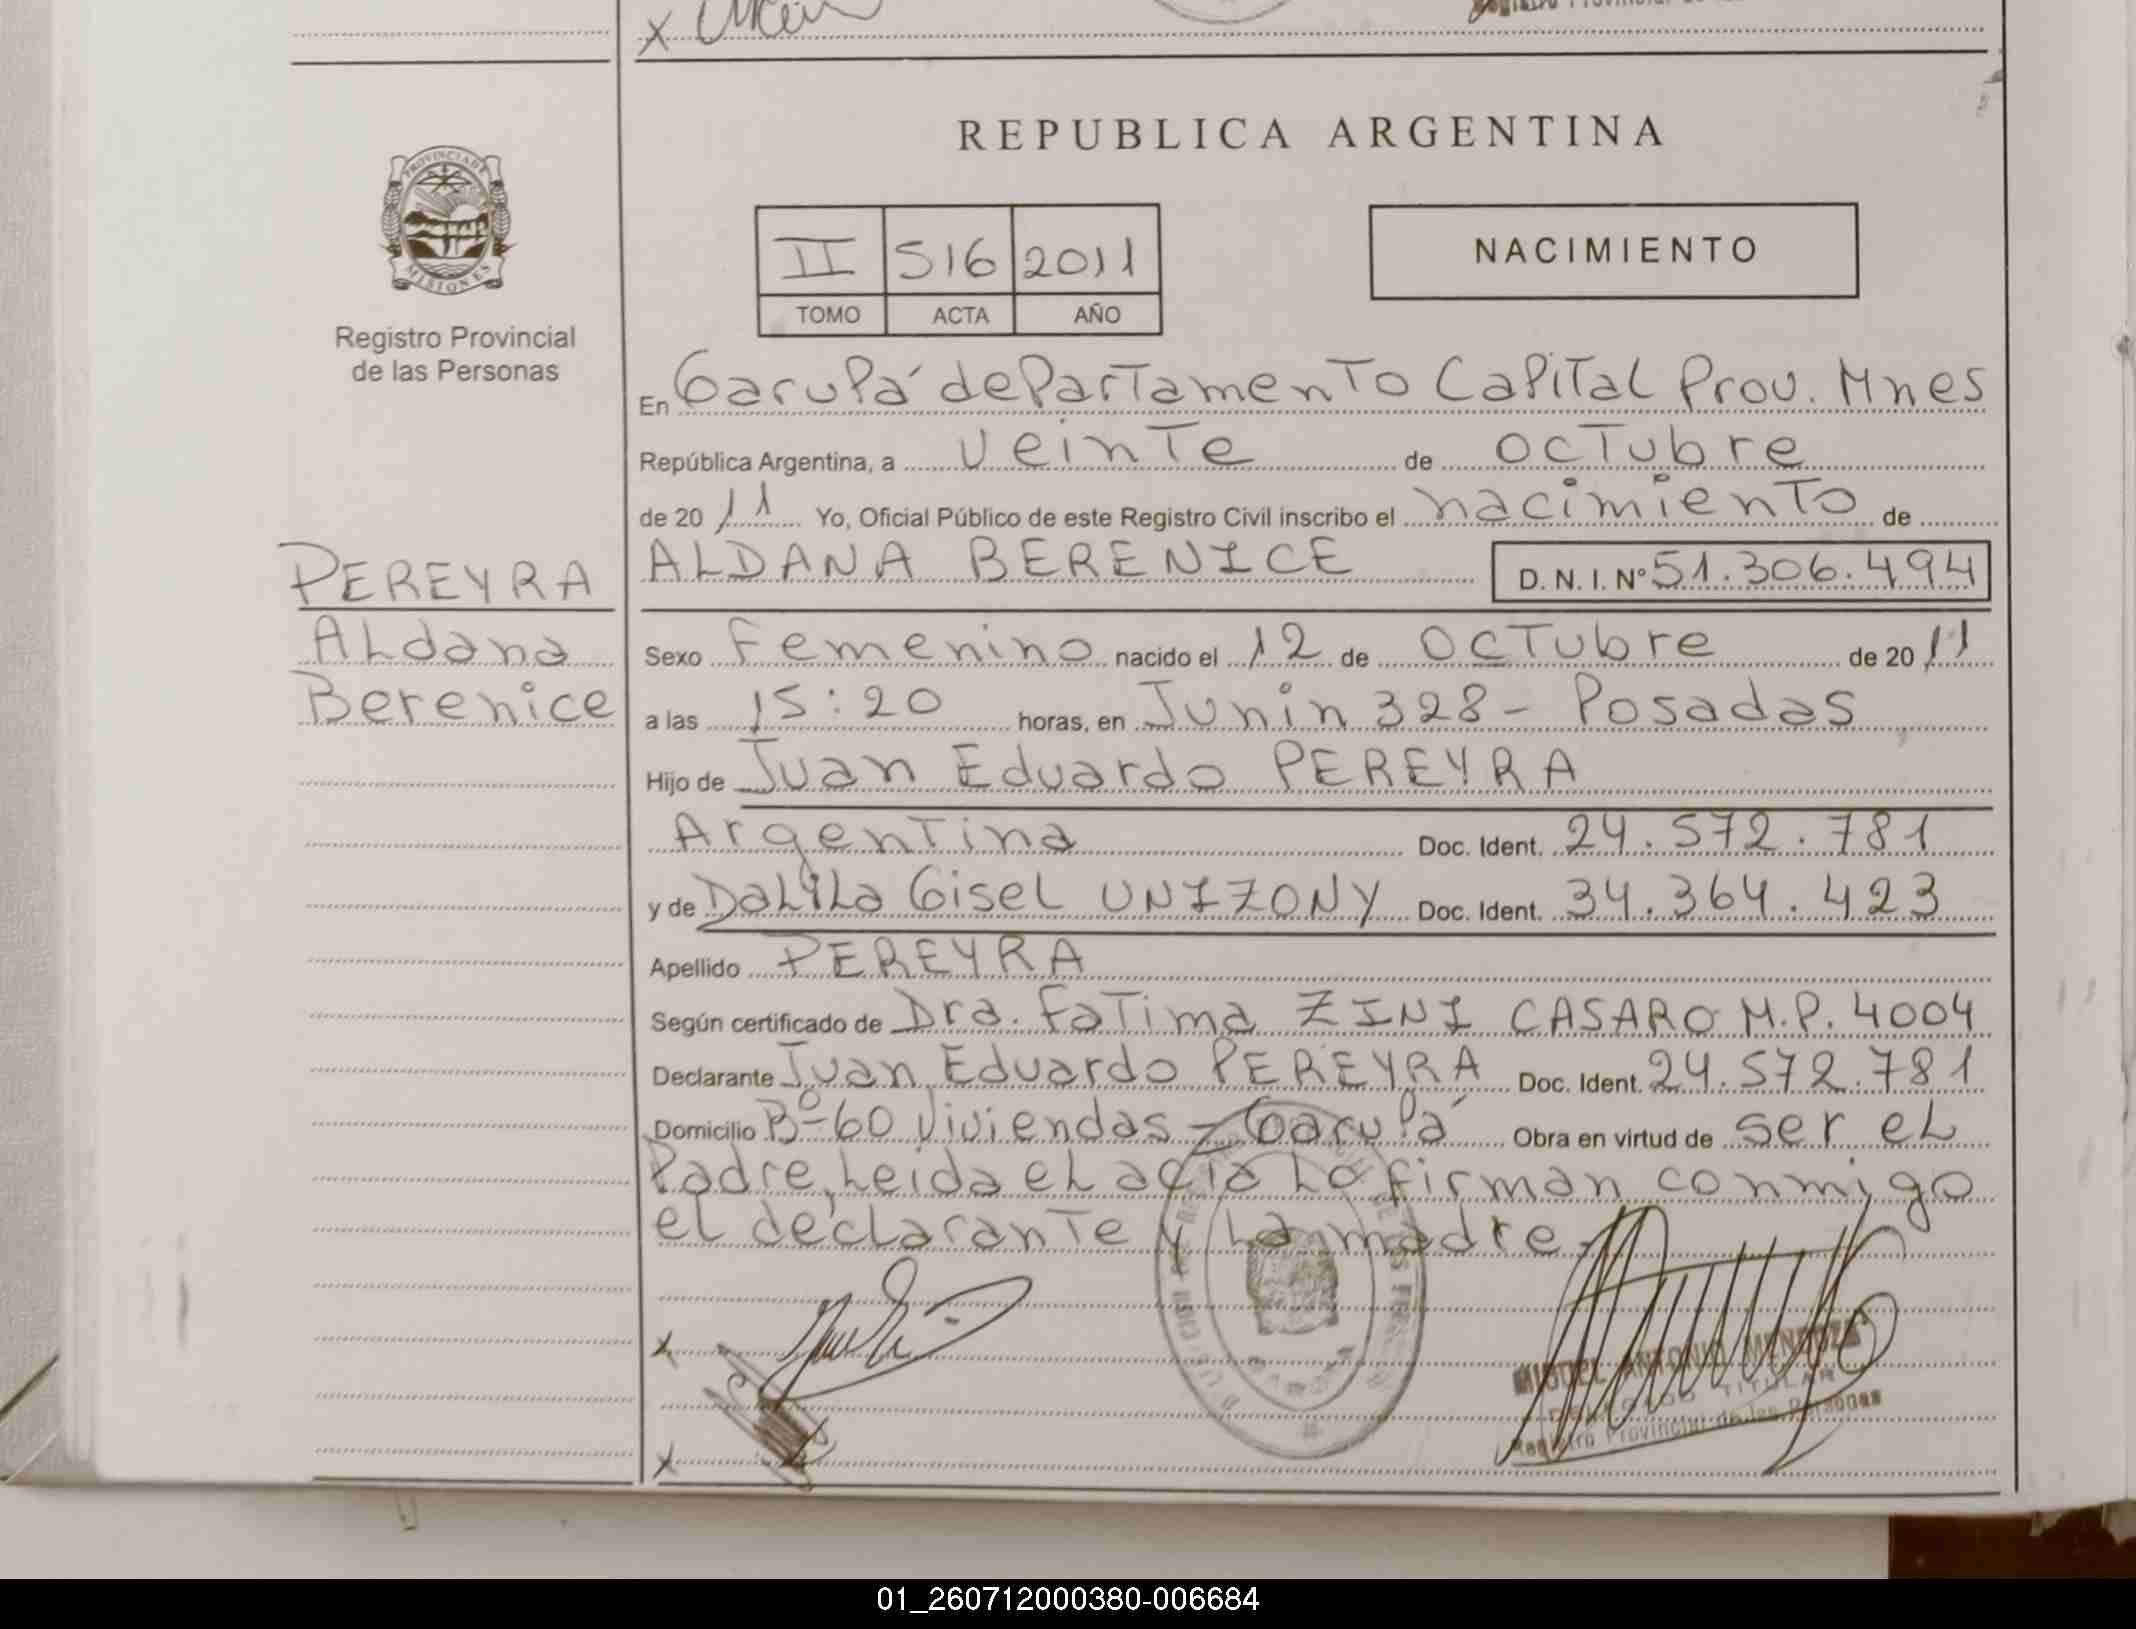 REPUBLICA ARGENTINA
PROVINCIA DE
MISIONES
Registro Provincial
de las Personas
II 516 2011
TOMO ACTA AÑO
NACIMIENTO
En Garupá departamento Capital Prov. Mnes
República Argentina, a veinte de octubre
de 20 11 Yo, Oficial Público de este Registro Civil inscribo el nacimiento de
PEREYRA
Aldana
Berenice
ALDANA BERENICE D. N. I. Nº 51.306.494
Sexo Femenino nacido el 12 de octubre de 20 11
a las 15:20 horas, en Junin 328 - Posadas
Hijo de Juan Eduardo PEREYRA
Argentina Doc. Ident. 24.572.781
y de Dalila Gisel UNIZONY Doc. Ident. 34.364.423
Apellido PEREYRA
Según certificado de Dra. Fatima ZINI CASARO M.P. 4004
Declarante Juan Eduardo PEREYRA Doc. Ident. 24.572.781
Domicilio Bº 60 Viviendas - Garupá Obra en virtud de ser el
Padre, Leida el acta lo firman conmigo
el declarante y la madre.
x
MIGUEL ANTONIO MENDOZA
DELEGADO TITULAR
Registro Provincial de las Personas
x
01_260712000380-006684